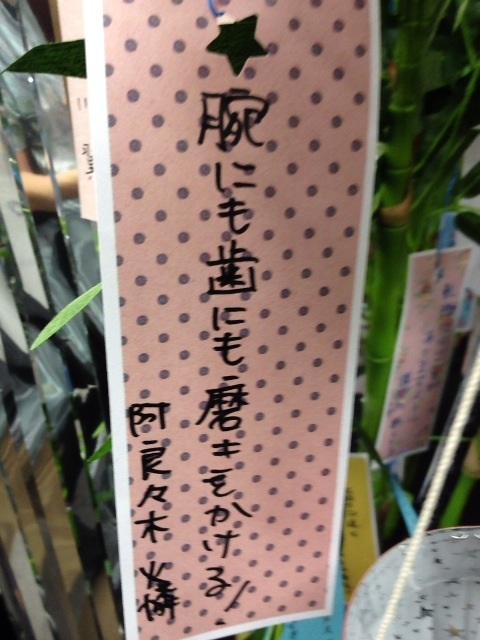 腕にも歯にも磨キをかける!
阿良々木火憐